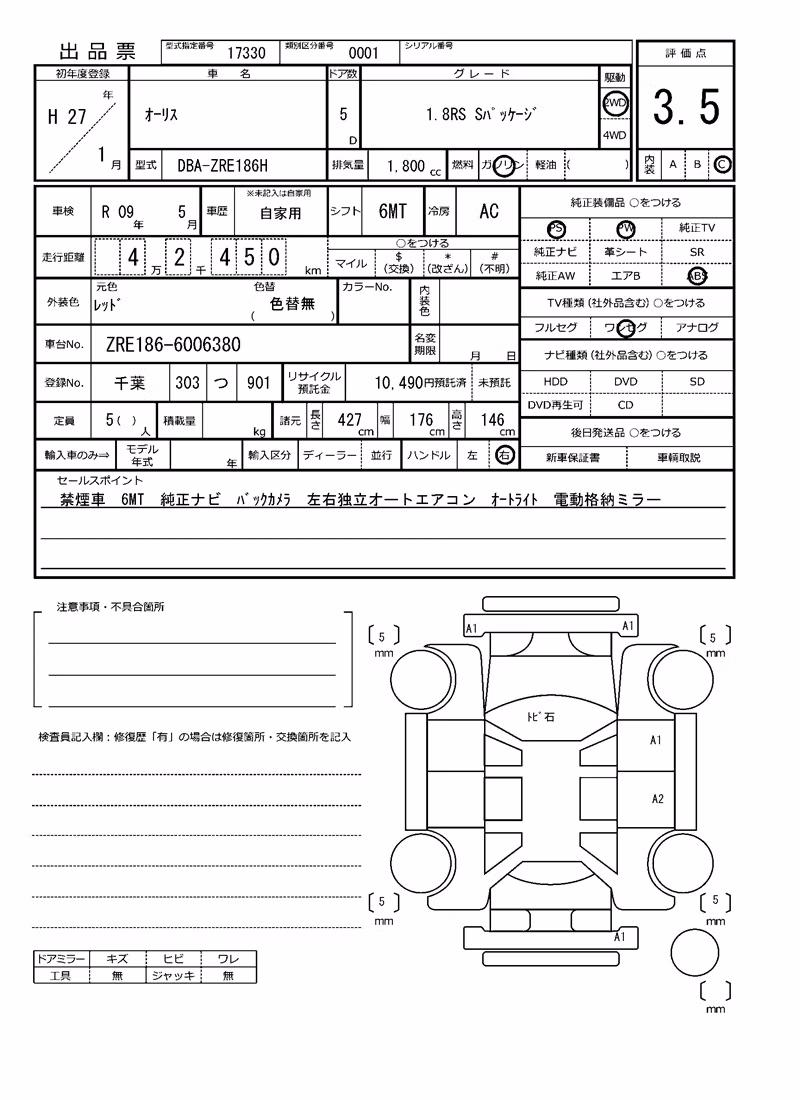 出品票 型式指定番号 17330 類別区分番号 0001 シリアル番号
評価点
3.5
内装 A B C
初年度登録 車名 ドア数 グレード 駆動
H 27 年 1 月
オーリス 5 D 1.8RS Sパッケージ 2WD 4WD
型式 DBA-ZRE186H 排気量 1,800 cc 燃料 ガソリン 軽油 ( )
車検 R 09 年 5 月 車歴 ※未記入は自家用 自家用 シフト 6MT 冷房 AC
走行距離 4 万 2 千 4 5 0 km
○をつける
マイル $ (交換) * (改ざん) # (不明)
外装色 元色 レッド 色替 ( 色替無 ) カラーNo. 内装色
車台No. ZRE186-6006380 名変期限 月 日
登録No. 千葉 303 つ 901 リサイクル預託金 10,490円預託済 未預託
定員 5( ) 人 積載量 kg 諸元 長さ 427 cm 幅 176 cm 高さ 146 cm
輸入車のみ⇒ モデル年式 年 輸入区分 ディーラー 並行 ハンドル 左 右
純正装備品 ○をつける
PS PW 純正TV
純正ナビ 革シート SR
純正AW エアB ABS
TV種類(社外品含む)○をつける
フルセグ ワンセグ アナログ
ナビ種類(社外品含む)○をつける
HDD DVD SD
DVD再生可 CD
後日発送品 ○をつける
新車保証書 車輌取説
セールスポイント
禁煙車 6MT 純正ナビ バックカメラ 左右独立オートエアコン オートライト 電動格納ミラー
注意事項・不具合箇所
検査員記入欄:修復歴「有」の場合は修復箇所・交換箇所を記入
ドアミラー キズ ヒビ ワレ
工具 無 ジャッキ 無
A1 A1
5 mm 5 mm
トビ石
A1
A2
5 mm 5 mm
A1
mm